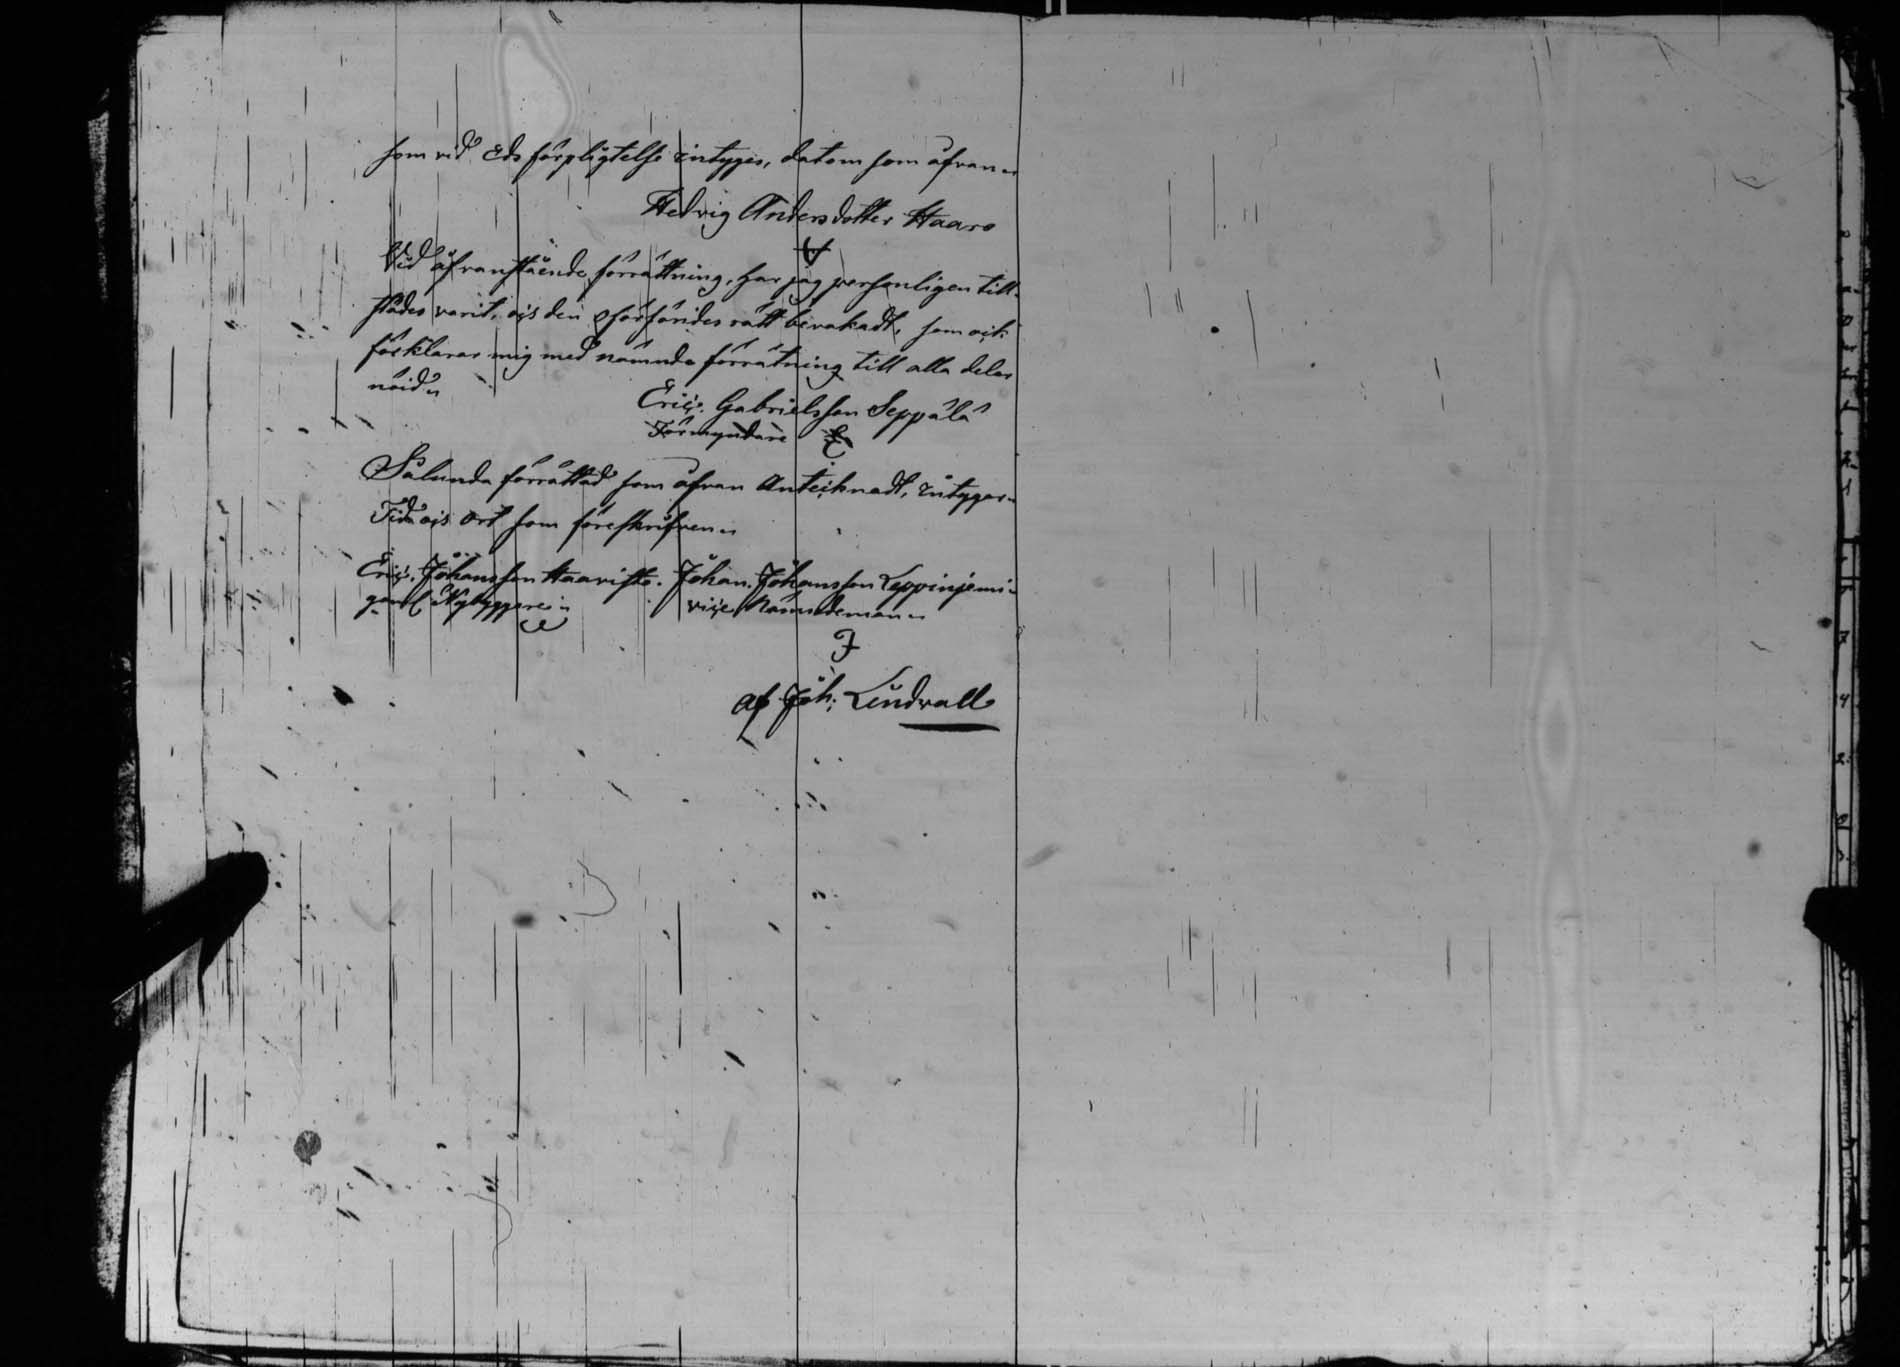 som vid Eds förpligtelse intyges, datom som åfvan
Hedvig Andersdotter Haara
Vid åfvanstående förrättning, har jag personligen till-
städes varit, och den oförsörides rätt bevakadt, som ock
förklarar mig med nämnde förrätning till alla delar
nöid
Eric Gabrielsson Seppälä
Förmyndare
Sålunda förrättad som åfvan Antecknadt, intygar
Tid och Ort som föreskrifven
Eric Johansson Haaristo. Johan Johansson Leppinjemi
Nybyggare vice Nämndeman
af Joh: Lindvall